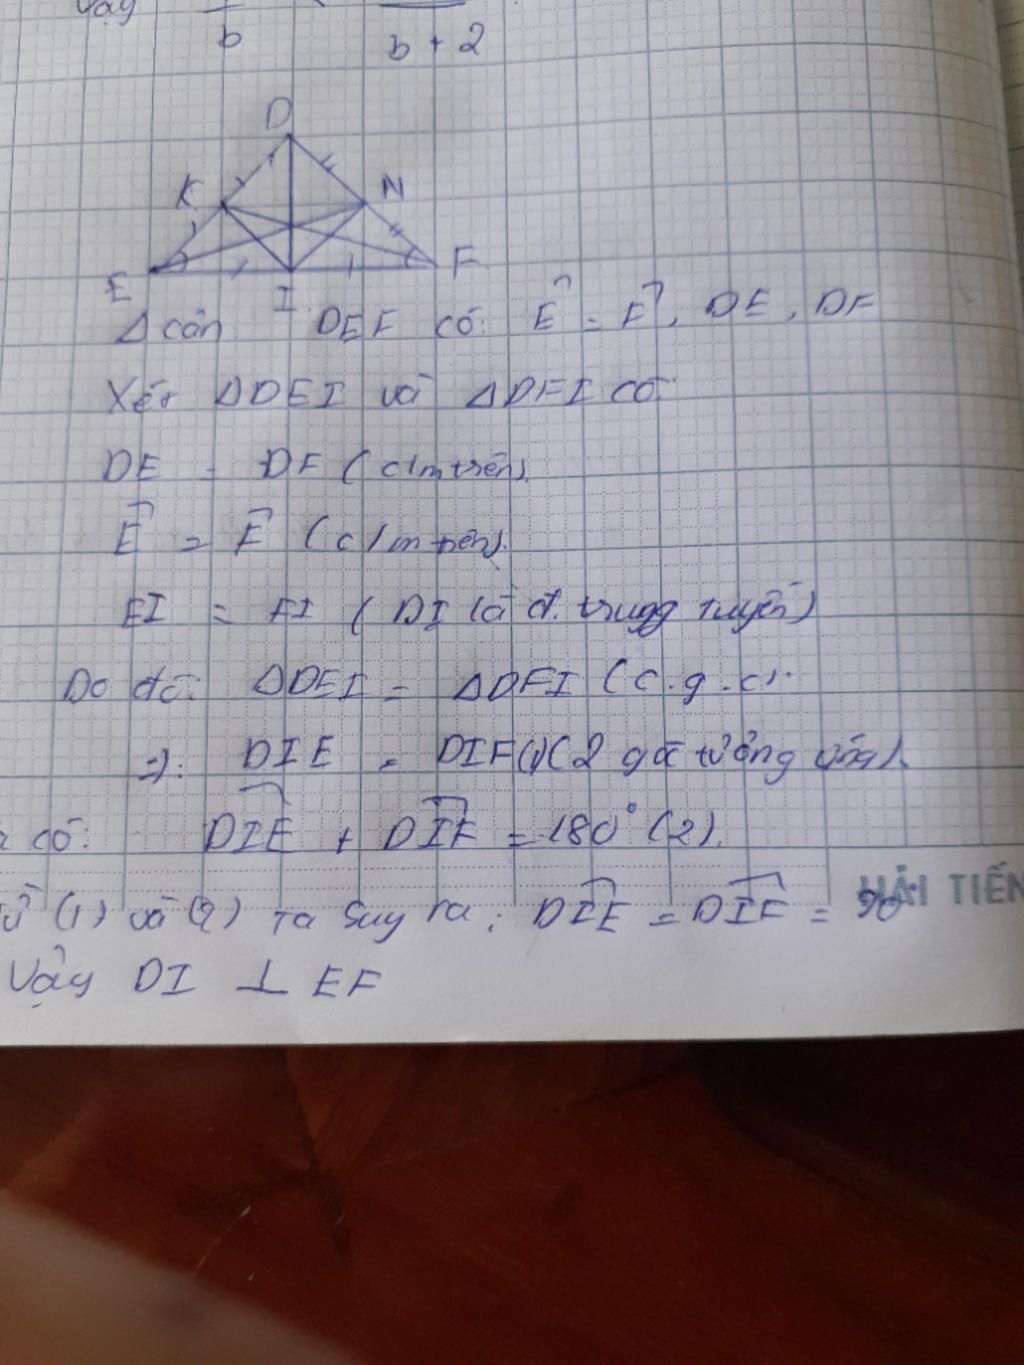 Vậy
b b + 2
D
K N
E I F
Δ cân DEF có: Ê = F̂, DE, DF
Xét ΔDEI và ΔDFI có:
DE = DF (c/m trên).
Ê = F̂ (c/m trên).
EI = FI (DI là đ. trugg tuyến)
Do đó: ΔDEI = ΔDFI (c.g.c).
=): DIE = DIF (1) (2 góc tưởng ứng).
có: DIE + DIF = 180° (2).
Từ (1) và (2) ta suy ra: DIE = DIF = 90
HẢI TIẾN
Vậy DI ⊥ EF